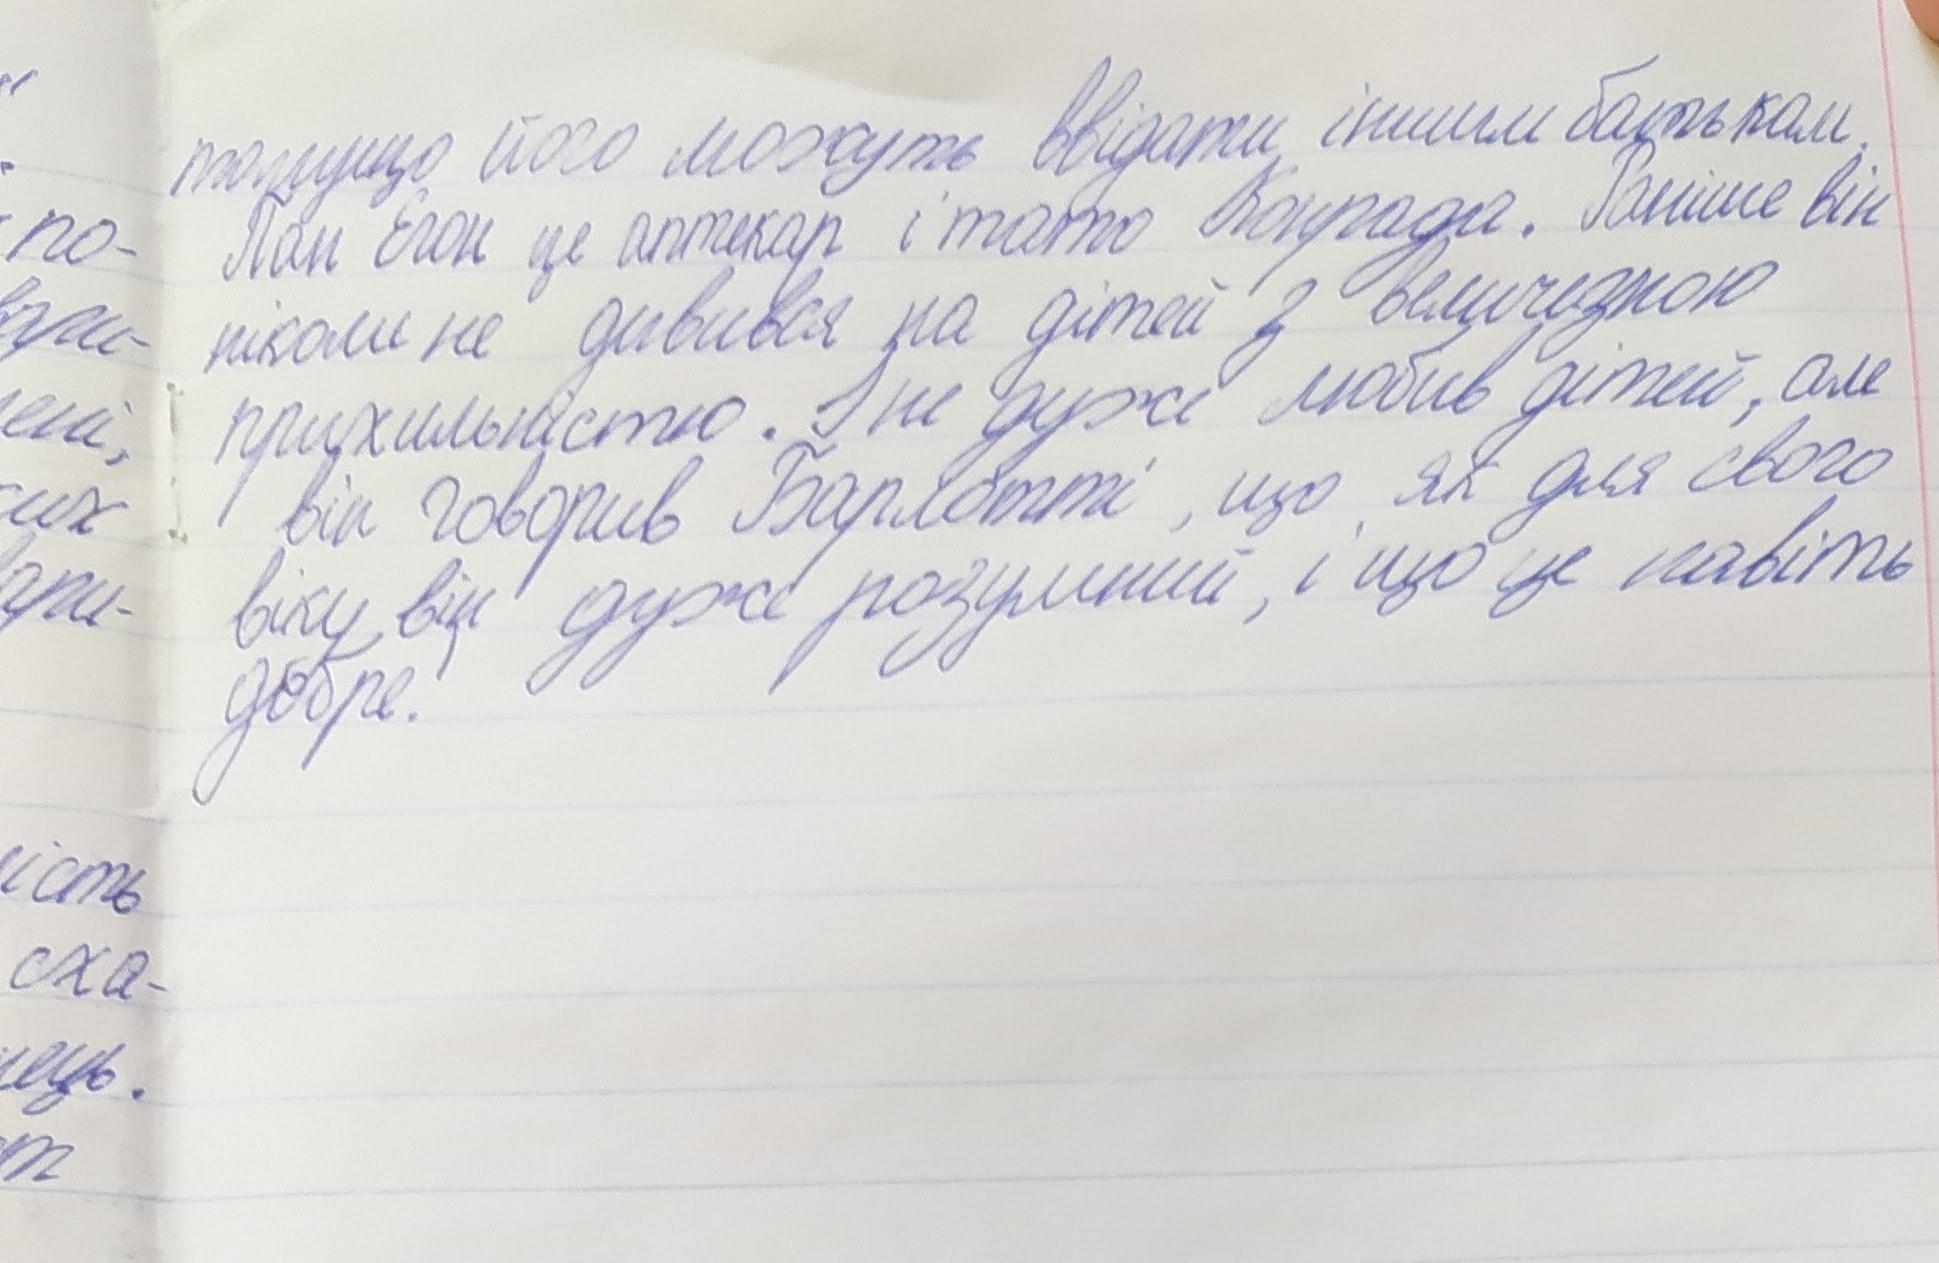 тому що його можуть ввідати іншим батькам.
Пан Егон це аптекар і тато Конрада. Раніше він
ніколи не дивився на дітей з величезною
прихильністю. І не дуже любив дітей, але
він говорив Барлотті, що, як для свого
віку, він дуже розумний, і що це навіть
добре.
по-
вари-
ені,
их
вари-
ність
сха-
нець.
т